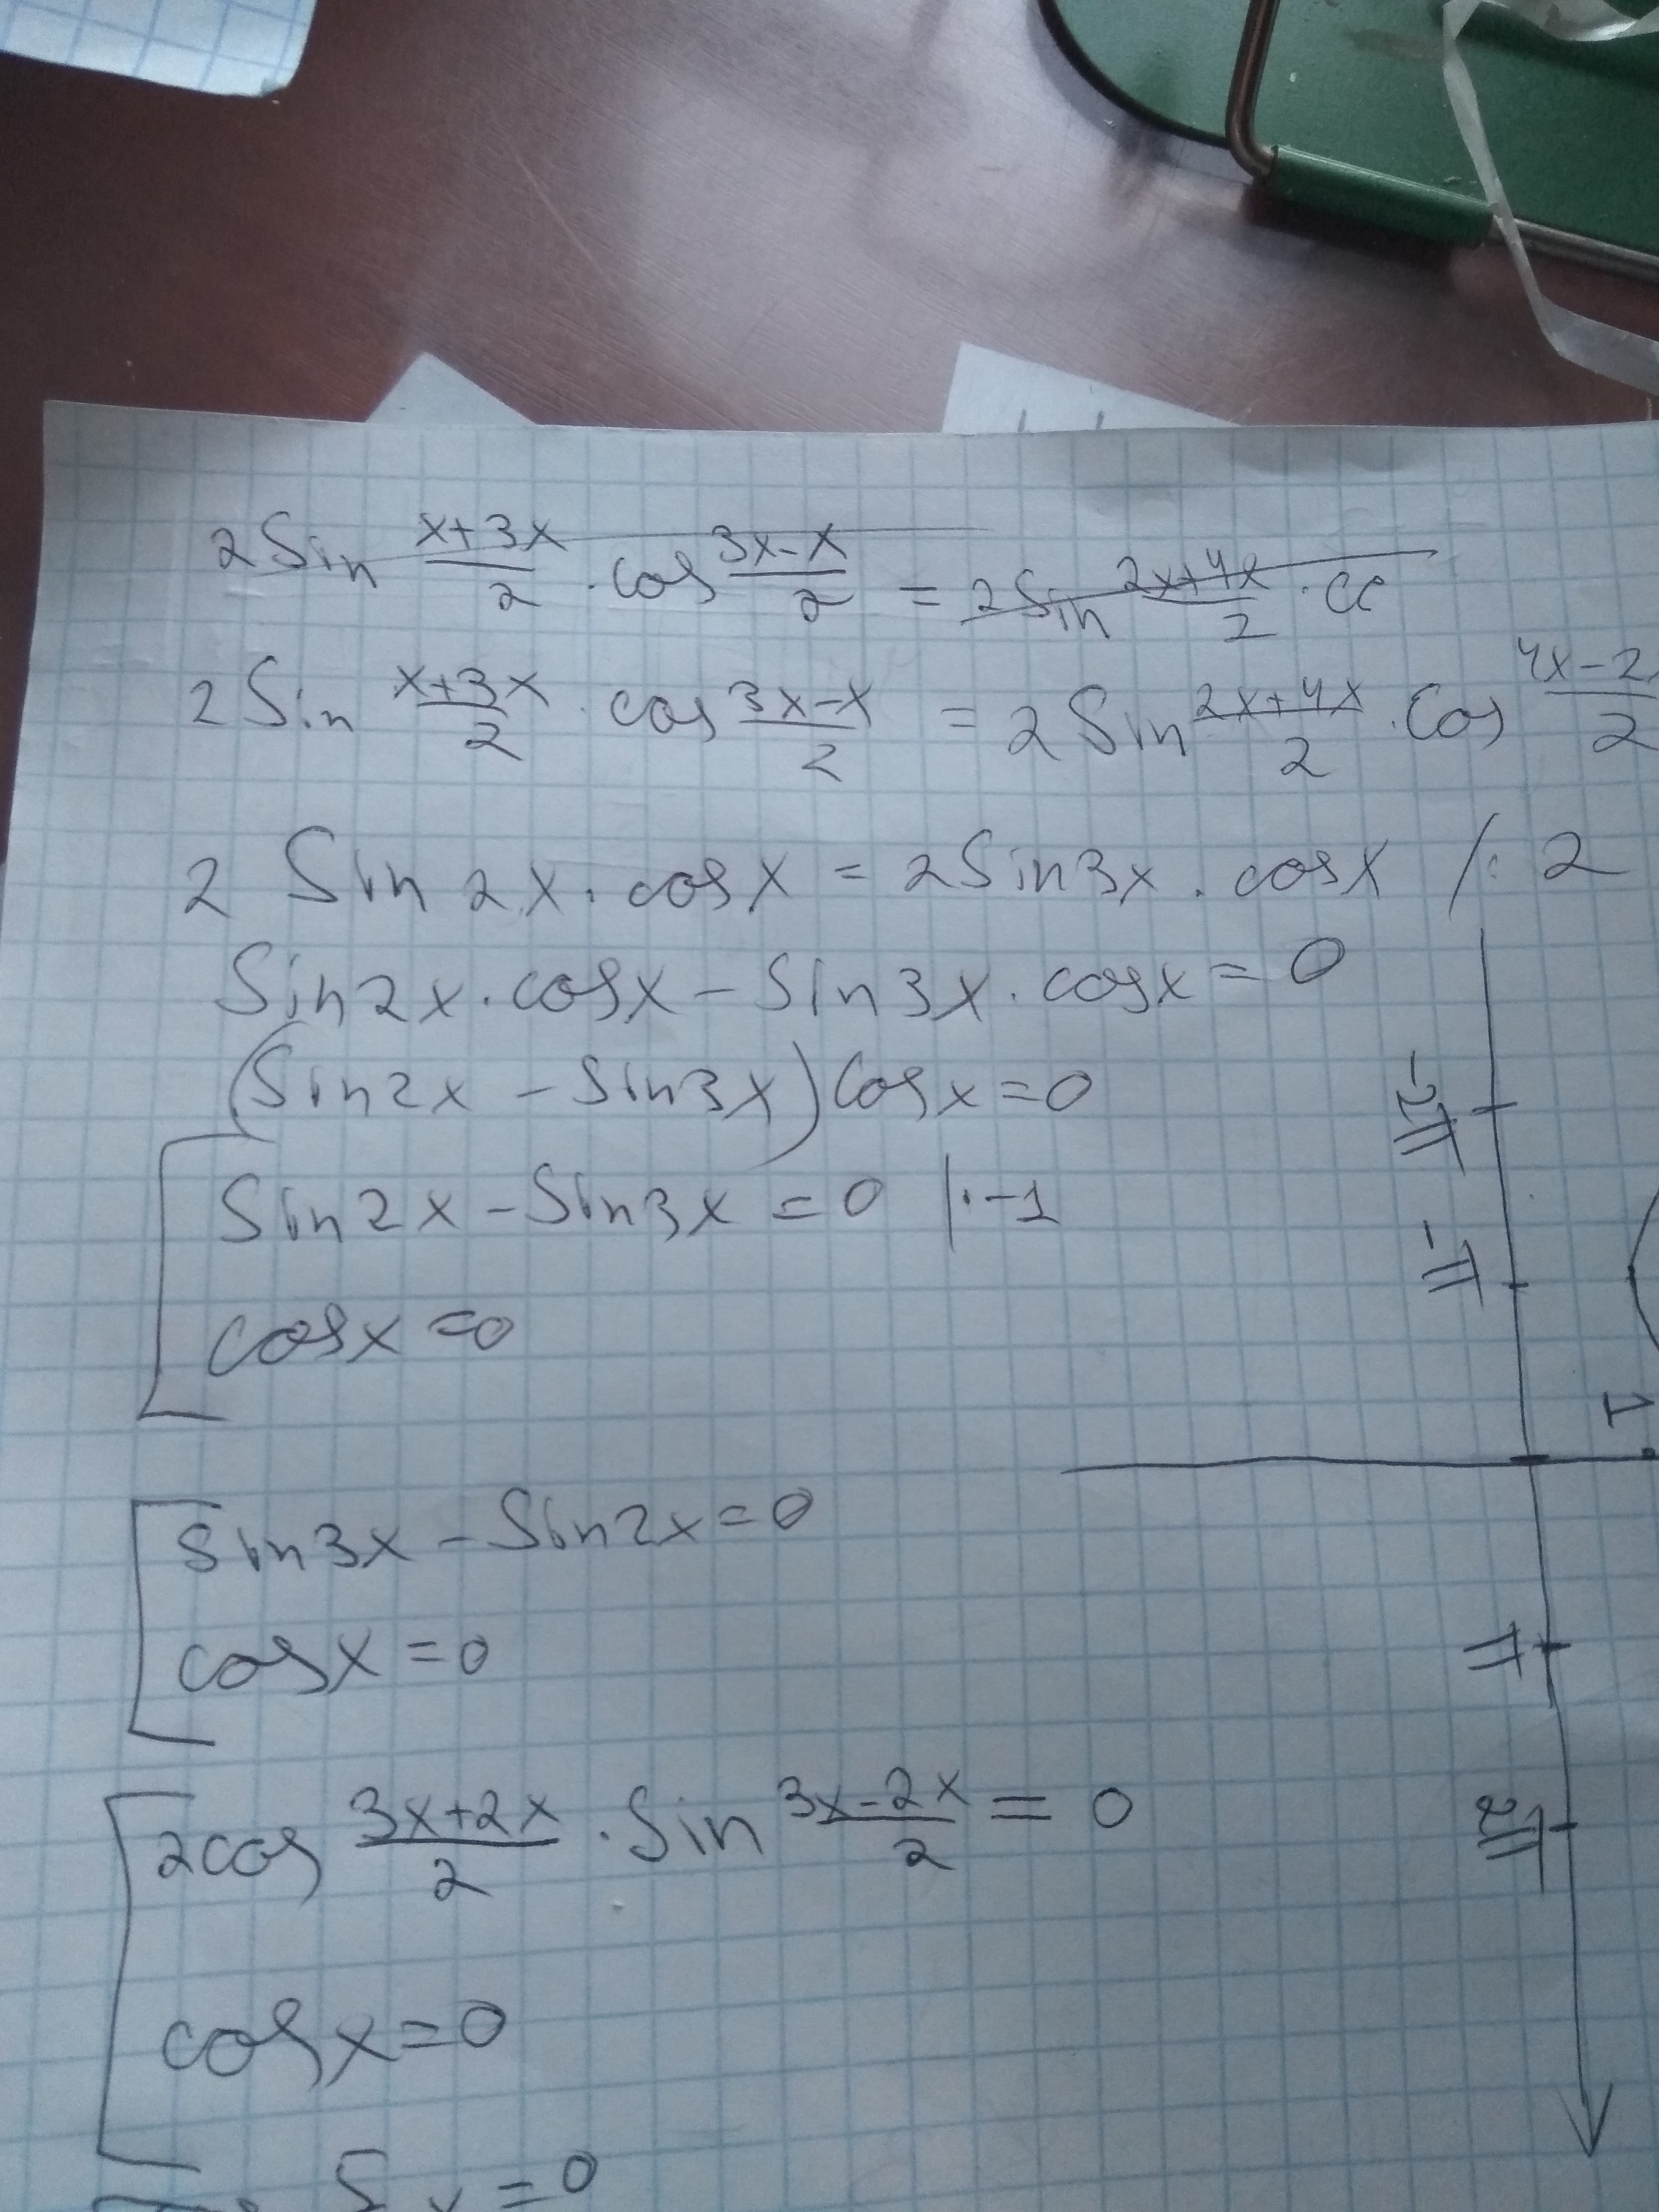 2Sin (x+3x)/2 · cos (3x-x)/2 = 2Sin (2x+4x)/2 · cc
2Sin (x+3x)/2 · cos (3x-x)/2 = 2Sin (2x+4x)/2 · cos (4x-2x)/2
2 Sin 2x · cosx = 2Sin3x · cosx /: 2
Sin2x · cosx - Sin3x · cosx = 0
(Sin2x - Sin3x) cosx = 0
Sin2x - Sin3x = 0 |·-1
cosx = 0
Sin3x - Sin2x = 0
cosx = 0
2cos (3x+2x)/2 · Sin (3x-2x)/2 = 0
cosx = 0
-2π
-π
1
π
2π